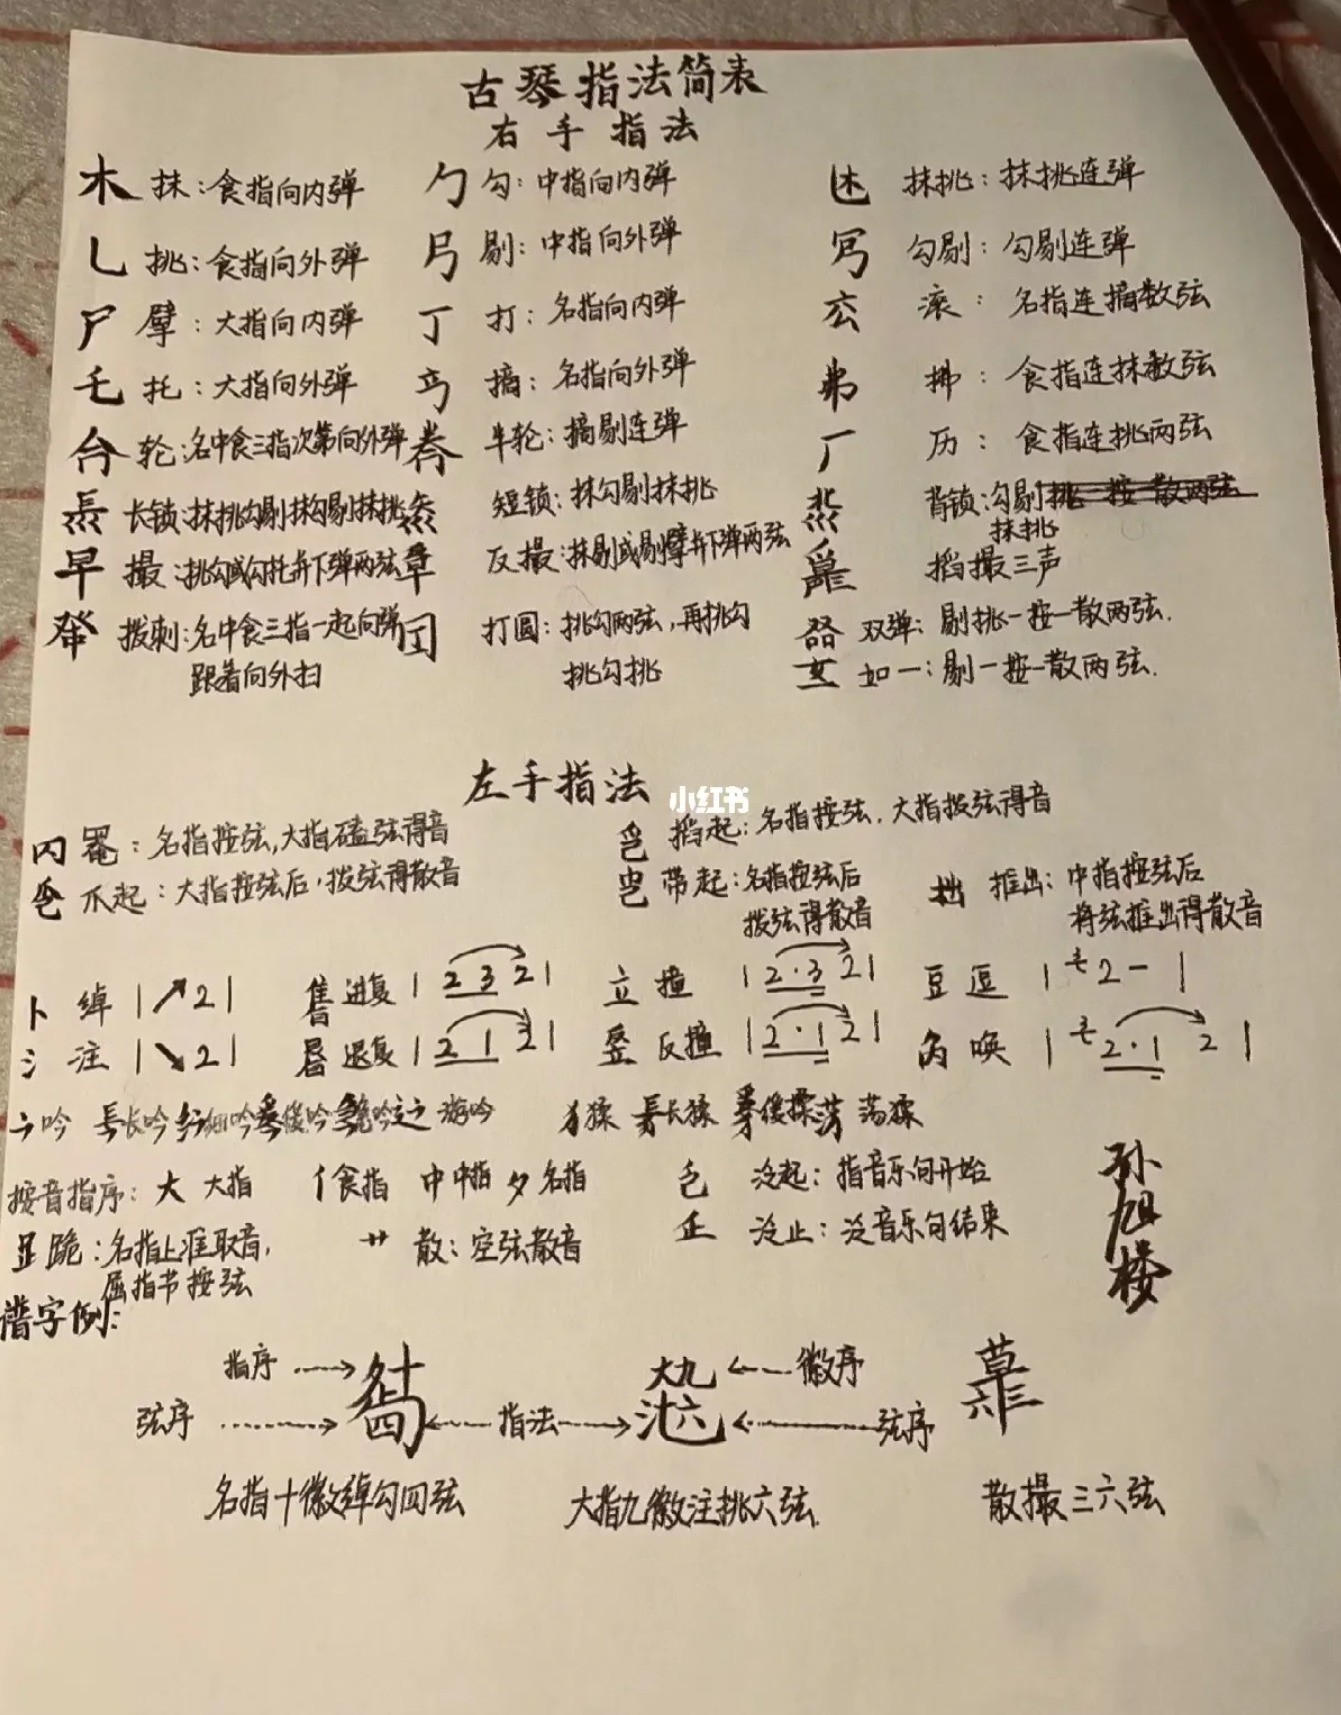 古琴指法简表
右手指法
木 抹：食指向内弹 勹 勾：中指向内弹 抹挑：抹挑连弹
乚 挑：食指向外弹 剔：中指向外弹 勾剔：勾剔连弹
尸 擘：大指向内弹 丁 打：名指向内弹 滚：名指连摘数弦
乇 托：大指向外弹 摘：名指向外弹 弗 拂：食指连抹数弦
轮：名中食三指次第向外弹 半轮：摘剔连弹 厂 历：食指连挑两弦
长锁：抹挑勾剔抹勾剔抹挑 短锁：抹勾剔抹挑 背锁：勾剔
抹挑
早 撮：挑勾或勾托并下弹两弦 反撮：抹剔或剔擘并下弹两弦 搯撮三声
拨刺：名中食三指一起向弹 打圆：挑勾两弦，再挑勾 双弹：剔挑一按一散两弦．
跟着向外扫 挑勾挑 如一：剔一按一散两弦．
左手指法
小红书
罨：名指按弦，大指磕弦得音 搯起：名指按弦．大指拨弦得音
爪起：大指按弦后，拨弦得散音 带起：名指按弦后 推出：中指按弦后
拨弦得散音 将弦推出得散音
卜 绰 |↗2| 进复 | 2 3 2 | 立 撞 | 2·3 2 | 豆 逗 | 2 - |
氵 注 |↘2| 退复 | 2 1 2 | 反撞 | 2·1 2 | 唤 | 2·1 2 |
吟 长吟 细吟 缓吟 急吟 游吟 犭猱 长猱 缓猱 荡猱
按音指序：大 大指 亻食指 中中指 夕名指 泛起：指音乐句开始
跪：名指上准取音， 卄 散：空弦散音 正 泛止：泛音乐句结束
屈指节按弦
孙旭楼
谱字例：
指序 大九 徽序
弦序 指法 弦序
名指十徽绰勾四弦 大指九徽注挑六弦． 散撮三六弦